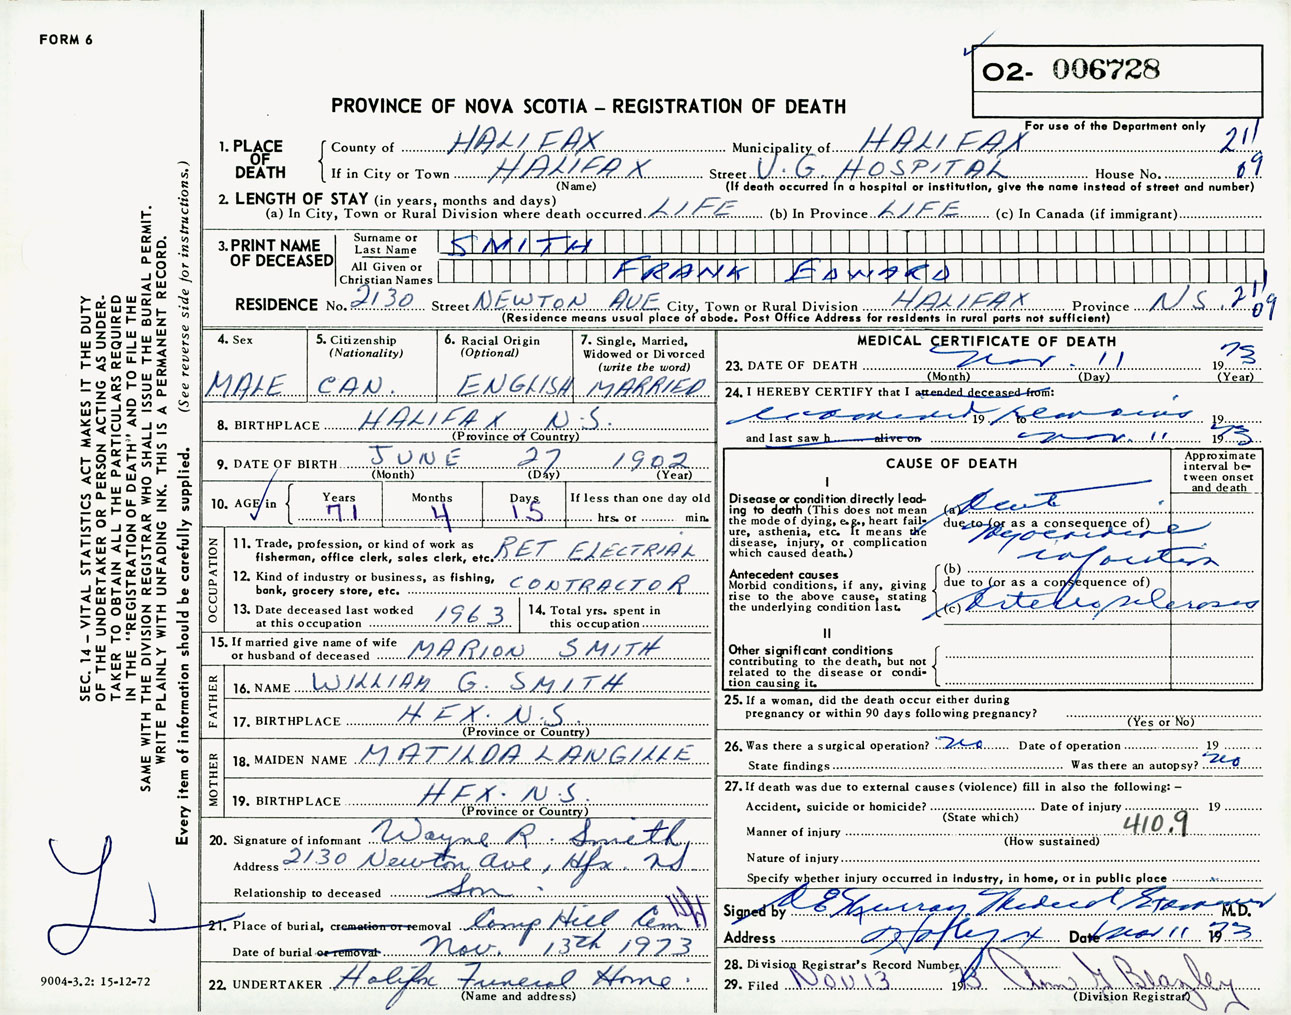 FORM 6
02- 006728
PROVINCE OF NOVA SCOTIA – REGISTRATION OF DEATH
For use of the Department only
1. PLACE OF DEATH
County of HALIFAX Municipality of HALIFAX 211
If in City or Town HALIFAX Street V.G. HOSPITAL House No. 09
(Name) (If death occurred in a hospital or institution, give the name instead of street and number)
2. LENGTH OF STAY (in years, months and days)
(a) In City, Town or Rural Division where death occurred LIFE (b) In Province LIFE (c) In Canada (if immigrant)
3. PRINT NAME OF DECEASED
Surname or Last Name SMITH
All Given or Christian Names FRANK EDWARD
RESIDENCE No. 2130 Street NEWTON AVE City, Town or Rural Division HALIFAX Province N.S. 211 09
(Residence means usual place of abode. Post Office Address for residents in rural parts not sufficient)
4. Sex
MALE
5. Citizenship
(Nationality)
CAN.
6. Racial Origin
(Optional)
ENGLISH
7. Single, Married,
Widowed or Divorced
(write the word)
MARRIED
8. BIRTHPLACE HALIFAX N.S.
(Province of Country)
9. DATE OF BIRTH JUNE 27 1902
(Month) (Day) (Year)
10. AGE in
Years Months Days If less than one day old
71 4 15 hrs. or min.
OCCUPATION
11. Trade, profession, or kind of work as
fisherman, office clerk, sales clerk, etc. RET ELECTRIAL
12. Kind of industry or business, as fishing,
bank, grocery store, etc. CONTRACTOR
13. Date deceased last worked
at this occupation 1963
14. Total yrs. spent in
this occupation
15. If married give name of wife
or husband of deceased MARION SMITH
FATHER
16. NAME WILLIAM G. SMITH
17. BIRTHPLACE HFX. N.S.
(Province or Country)
MOTHER
18. MAIDEN NAME MATILDA LANGILLE
19. BIRTHPLACE HFX. N.S.
(Province or Country)
20. Signature of informant Wayne R. Smith
Address 2130 Newton Ave, Hfx. NS
Relationship to deceased Son
21. Place of burial, cremation or removal Camp Hill Cem
Date of burial or removal Nov. 13th 1973
22. UNDERTAKER Halifax Funeral Home.
(Name and address)
MEDICAL CERTIFICATE OF DEATH
23. DATE OF DEATH Nov. 11 1973
(Month) (Day) (Year)
24. I HEREBY CERTIFY that I attended deceased from:
examined remains 19 to 19
and last saw h alive on Nov. 11 1973
CAUSE OF DEATH
Approximate
interval be-
tween onset
and death
I
Disease or condition directly lead-
ing to death (This does not mean
the mode of dying, e.g., heart fail-
ure, asthenia, etc. It means the
disease, injury, or complication
which caused death.)
(a) Acute
due to (or as a consequence of)
Myocardial
infarction
Antecedent causes
Morbid conditions, if any, giving
rise to the above cause, stating
the underlying condition last.
(b)
due to (or as a consequence of)
(c) Arteriosclerosis
II
Other significant conditions
contributing to the death, but not
related to the disease or condi-
tion causing it.
25. If a woman, did the death occur either during
pregnancy or within 90 days following pregnancy?
(Yes or No)
26. Was there a surgical operation? no Date of operation 19
State findings Was there an autopsy? no
27. If death was due to external causes (violence) fill in also the following: –
Accident, suicide or homicide? Date of injury 19
(State which)
Manner of injury 410.9
(How sustained)
Nature of injury
Specify whether injury occurred in industry, in home, or in public place
Signed by Murray Medical Examiner M.D.
Address Halifax Date Nov 11 1973
28. Division Registrar's Record Number
29. Filed Nov 13 1973
(Division Registrar)
SEC. 14 – VITAL STATISTICS ACT MAKES IT THE DUTY
OF THE UNDERTAKER OR PERSON ACTING AS UNDER-
TAKER TO OBTAIN ALL THE PARTICULARS REQUIRED
IN THE "REGISTRATION OF DEATH" AND TO FILE THE
SAME WITH THE DIVISION REGISTRAR WHO SHALL ISSUE THE BURIAL PERMIT.
WRITE PLAINLY WITH UNFADING INK. THIS IS A PERMANENT RECORD.
Every item of information should be carefully supplied. (See reverse side for instructions.)
9004-3.2: 15-12-72